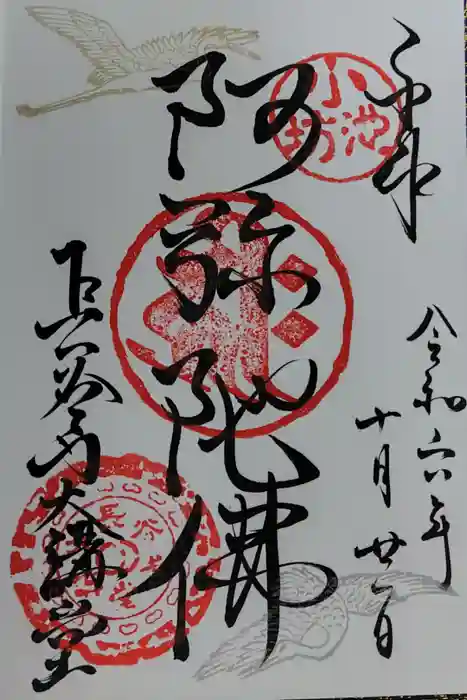 奉拝
小池坊
令和六年
十月廿一日
阿弥陀佛
長谷寺大講堂